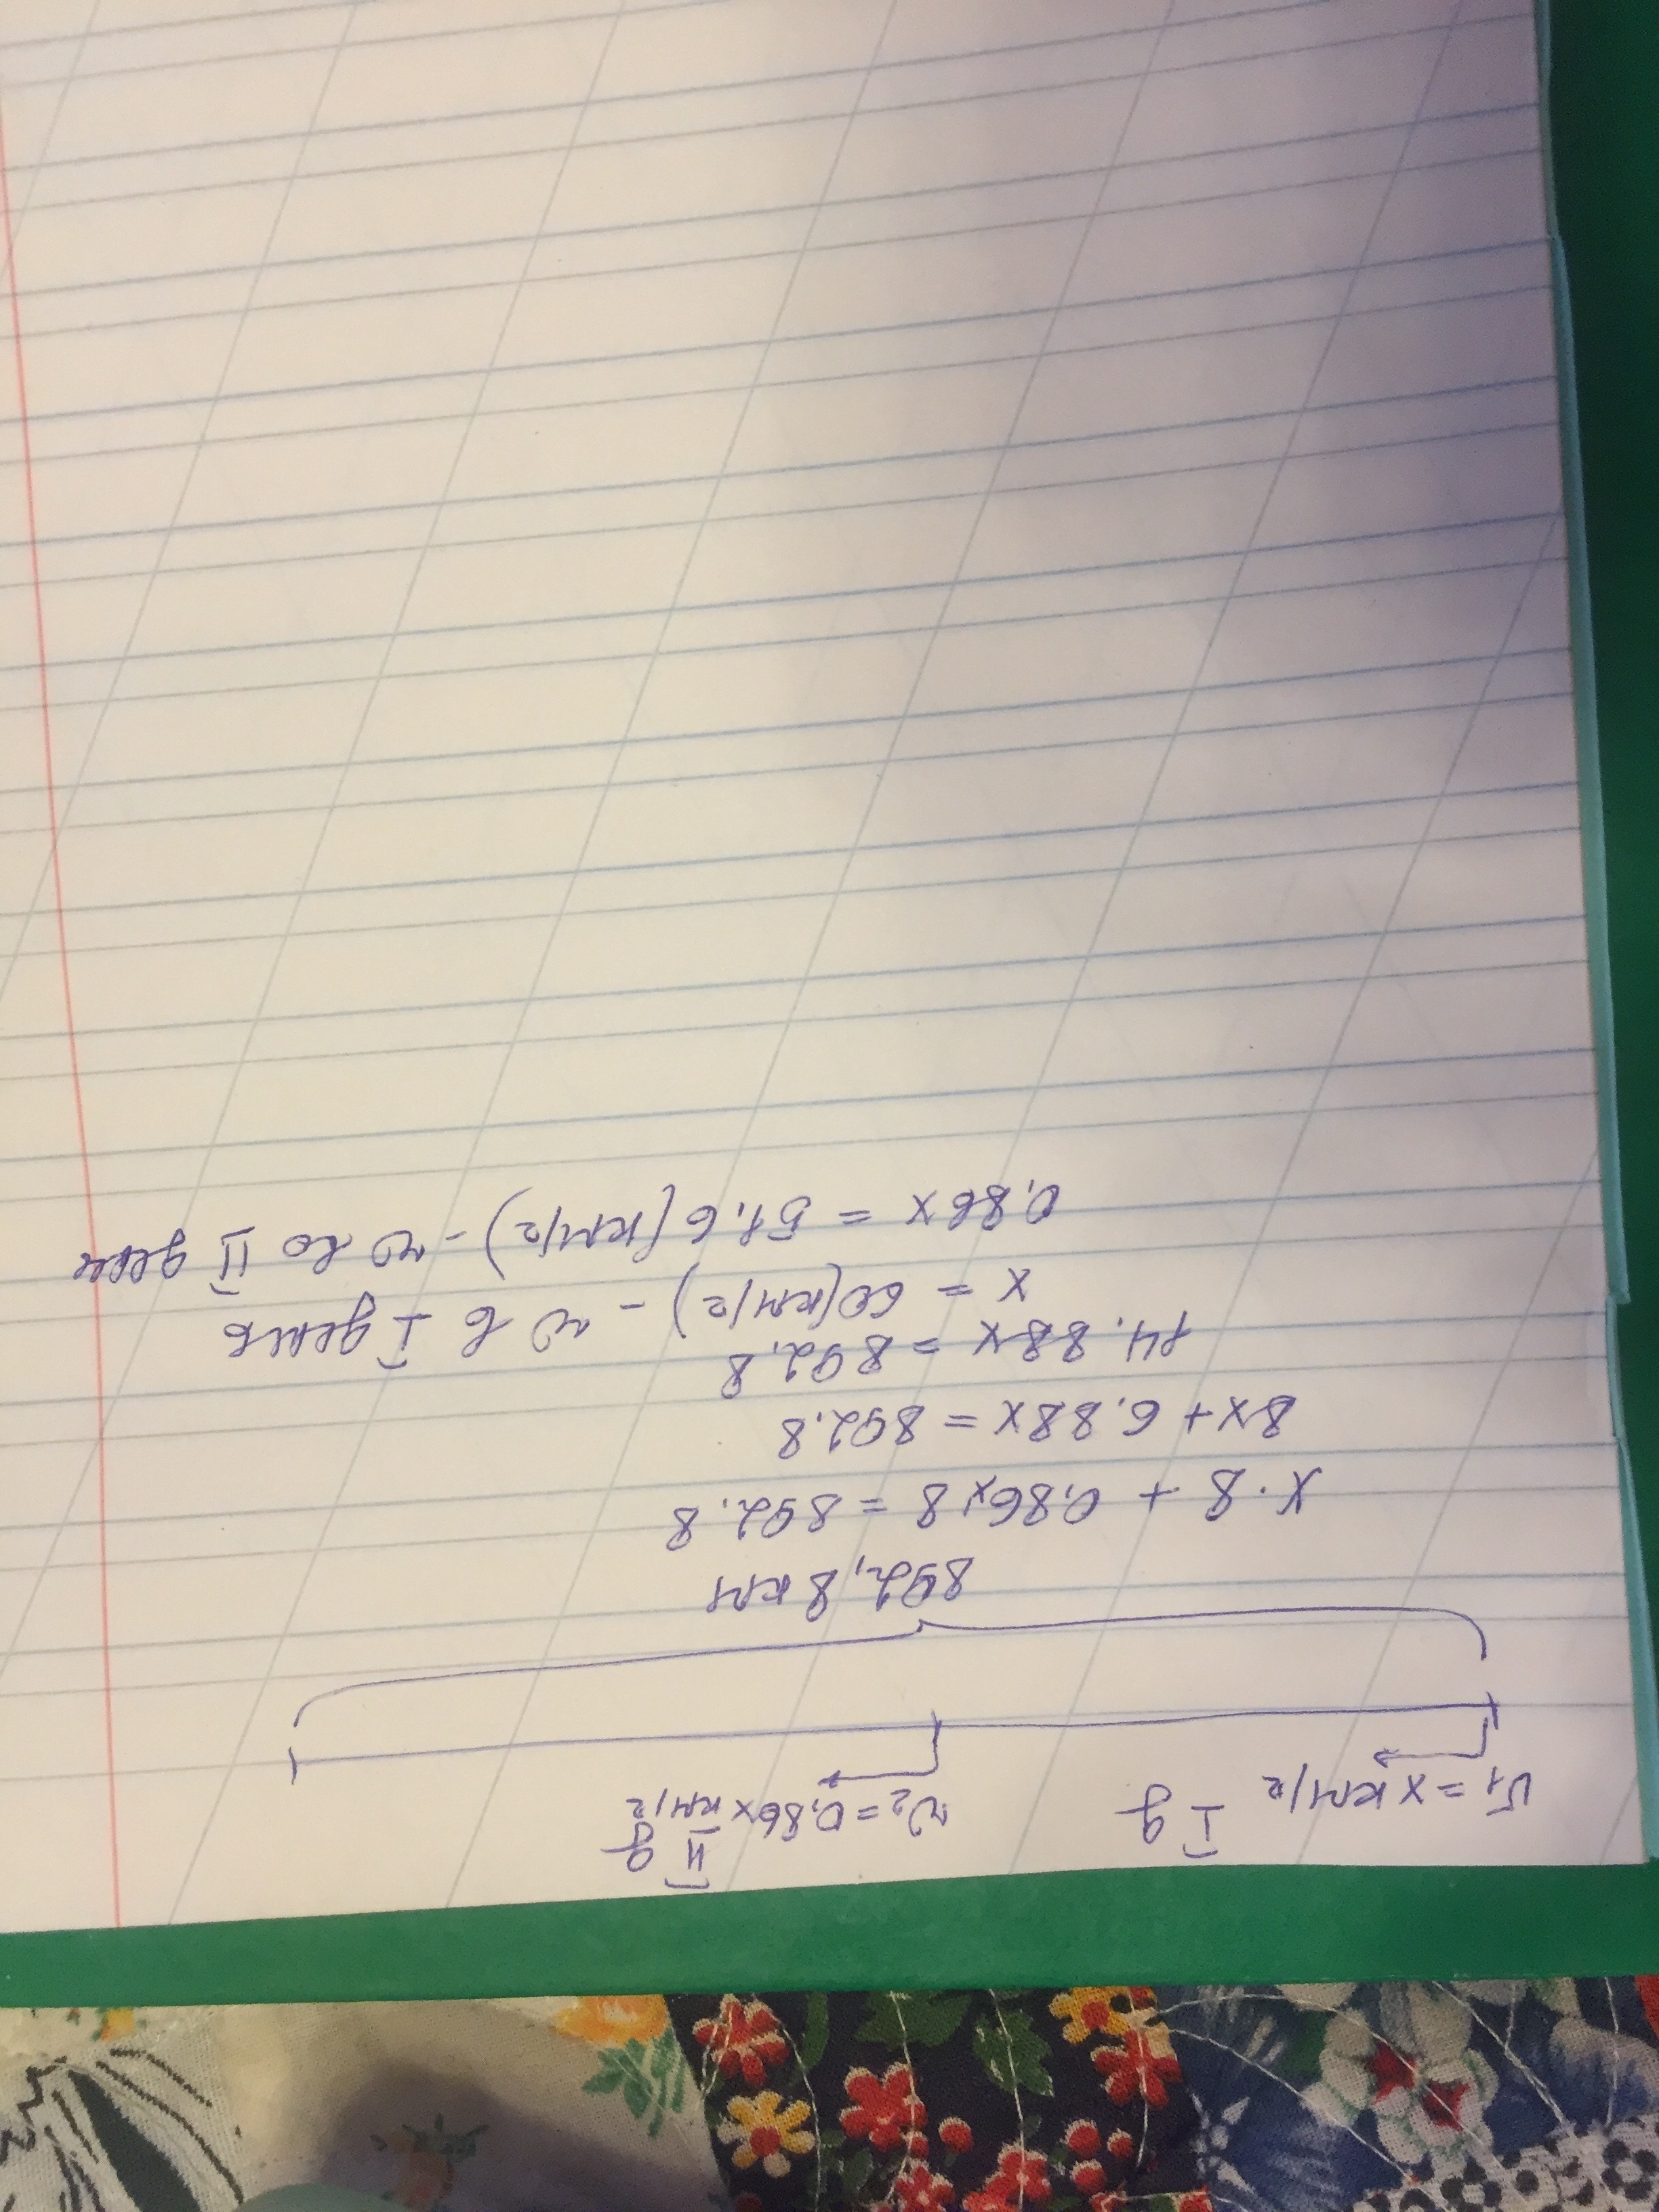 I д II д
v₁ = x км/г v₂ = 0,86x км/г
892,8 км
x · 8 + 0,86x 8 = 892,8
8x + 6,88x = 892,8
14,88x = 892,8
x = 60 (км/г) - v в I день
0,86x = 51,6 (км/г) - v во II день